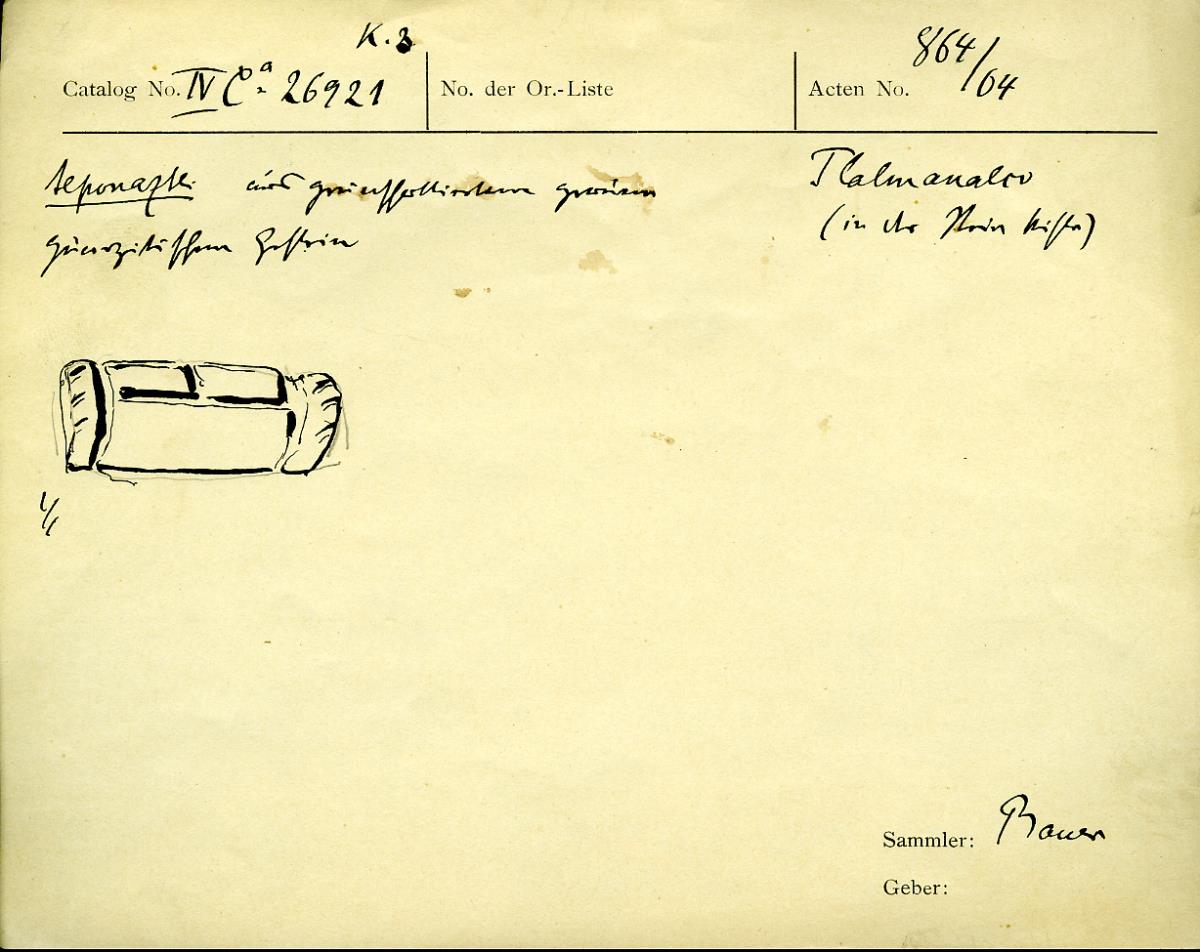 K. 3
Catalog No. IV Ca 26921
No. der Or.-Liste
Acten No. 864/04
teponaztli aus grünschillerndem grauem
quarzitischem Gestein
Tlalmanalco
(in der Steinkiste)
1/1
Sammler: Bauer
Geber: